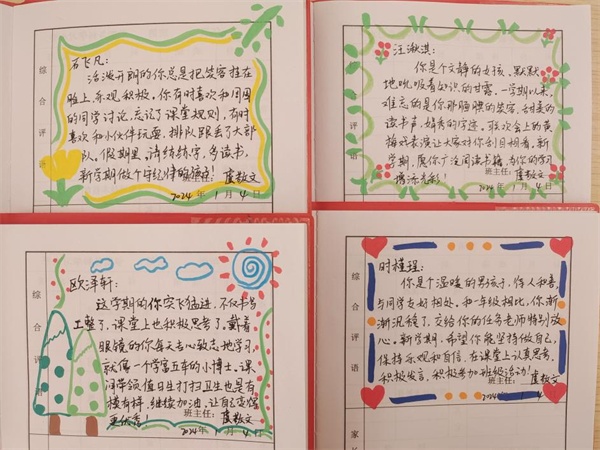 综合评语
石飞凡:
活泼开朗的你总是把笑容挂在
脸上,乐观积极。你有时喜欢和同周
的同学讨论,忘记了课堂规则,有时
喜欢和小伙伴玩耍,排队跟丢了大部
队。假期里,请练练字,多读书,
新学期做个年纪律的
班主任:
2024年1月4日
综合评语
汪湫淇:
你是个文静的女孩,默默
地吮吸着知识的甘露。一学期以来,
难忘的是你那腼腆的笑容,甜美的
读书声,娟秀的字迹。联欢会上的黄
梅戏表演让大家对你刮目相看,新
学期,愿你广泛阅读书籍,为你的学习
增添光彩!
班主任:
2024年1月4日
综合评语
欧泽轩:
这学期的你突飞猛进,不仅书写
工整了,课堂上也积极思考了,戴着
眼镜的你每天专心致志地学习,
就像一个学富五车的小博士。课
间带领值日生打扫卫生也是有
模有样,继续加油,让自己变得
更优秀!
班主任:
2024年1月4日
综合评语
时槿瑆:
你是个温暖的男孩子,待人和善,
与同学友好相处。和一年级相比,你渐
渐沉稳了,交给你的任务老师特别放
心。新学期,希望你能坚持做自己,
保持乐观和自信,在课堂上认真思考,
积极发言,积极参加班级活动!
班主任:
2024 1 4
家